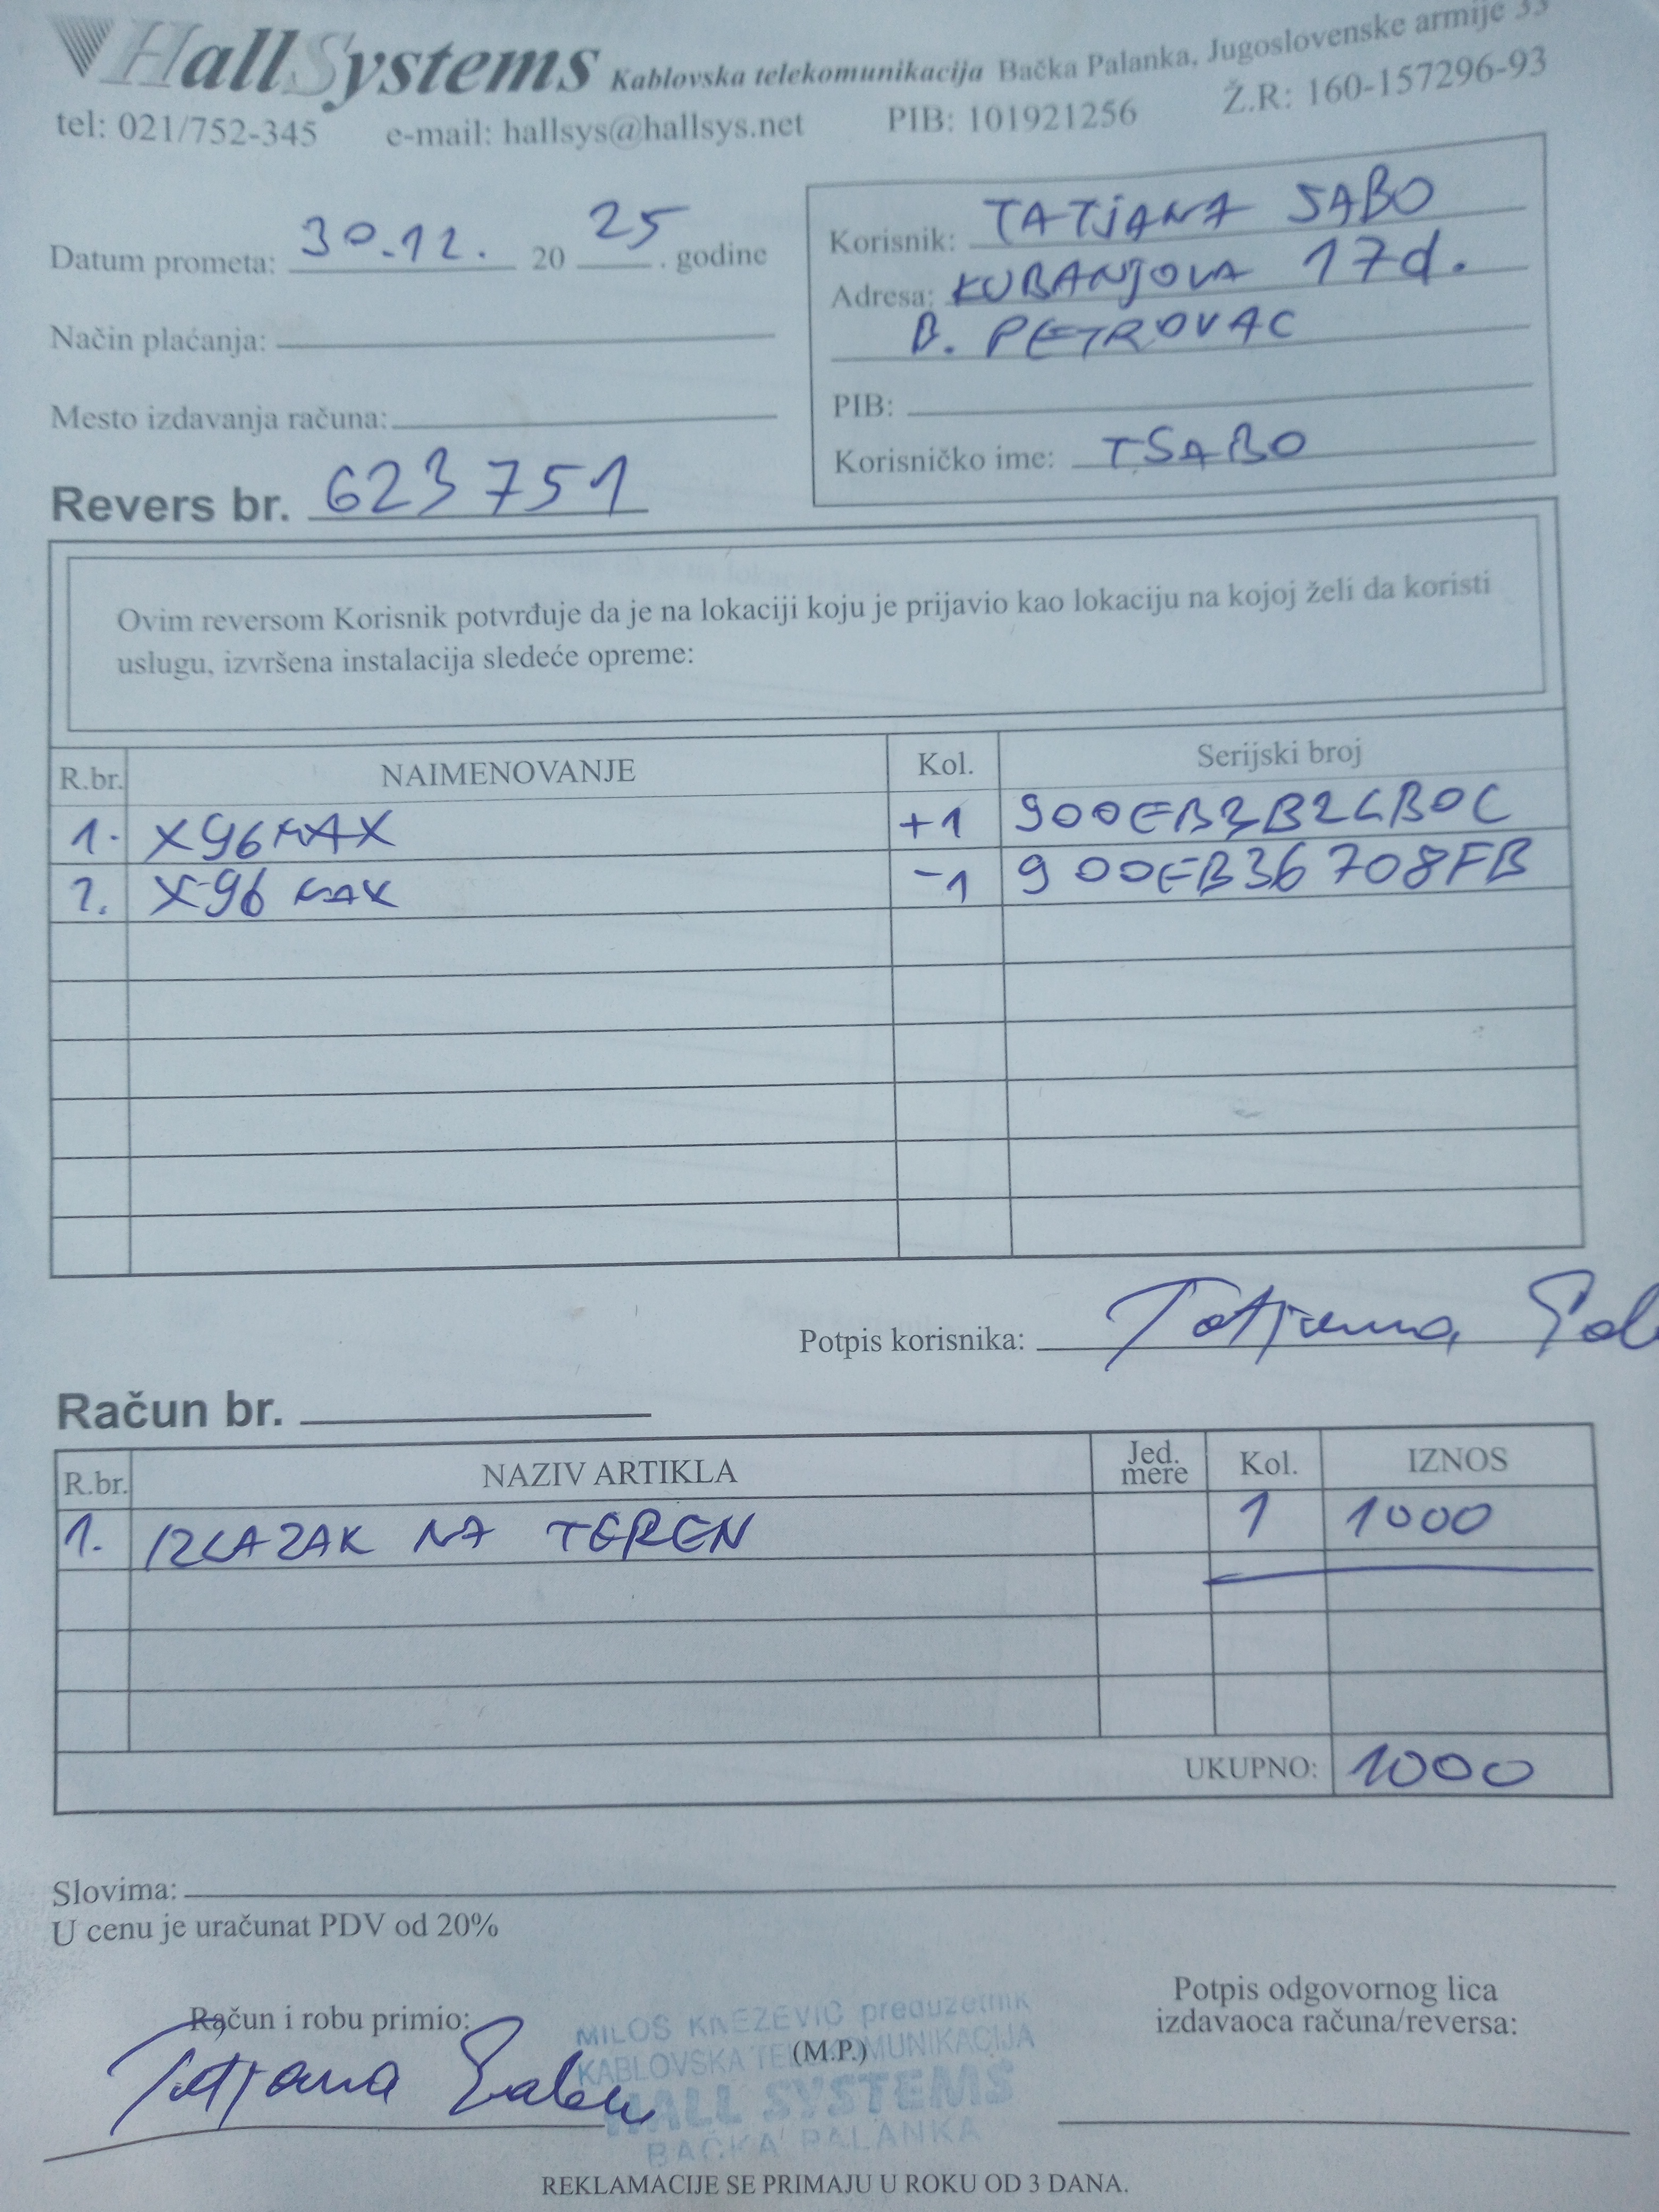 HallSystems Kablovska telekomunikacija Bačka Palanka, Jugoslovenske armije 33
tel: 021/752-345 e-mail: hallsys@hallsys.net PIB: 101921256 Ž.R: 160-157296-93
Datum prometa: 30.12. 20 25 . godine
Način plaćanja:
Mesto izdavanja računa:
Revers br. 623751
Korisnik: TATJANA SABO
Adresa: KUBANJOVA 17d.
B. PETROVAC
PIB:
Korisničko ime: TSABO
Ovim reversom Korisnik potvrđuje da je na lokaciji koju je prijavio kao lokaciju na kojoj želi da koristi
uslugu, izvršena instalacija sledeće opreme:
R.br. NAIMENOVANJE Kol. Serijski broj
1. X96MAX +1
2. X96 MAX -1 900EB36708FB
Potpis korisnika: Tatjana
Račun br.
R.br. NAZIV ARTIKLA Jed. mere Kol. IZNOS
1. IZLAZAK NA TEREN 1 1000
UKUPNO: 1000
Slovima:
U cenu je uračunat PDV od 20%
Račun i robu primio:
Tatjana Sabo
MILOŠ KNEŽEVIĆ preduzetnik
KABLOVSKA TELEKOMUNIKACIJA
(M.P.)
HALL SYSTEMS
BAČKA PALANKA
Potpis odgovornog lica
izdavaoca računa/reversa:
REKLAMACIJE SE PRIMAJU U ROKU OD 3 DANA.